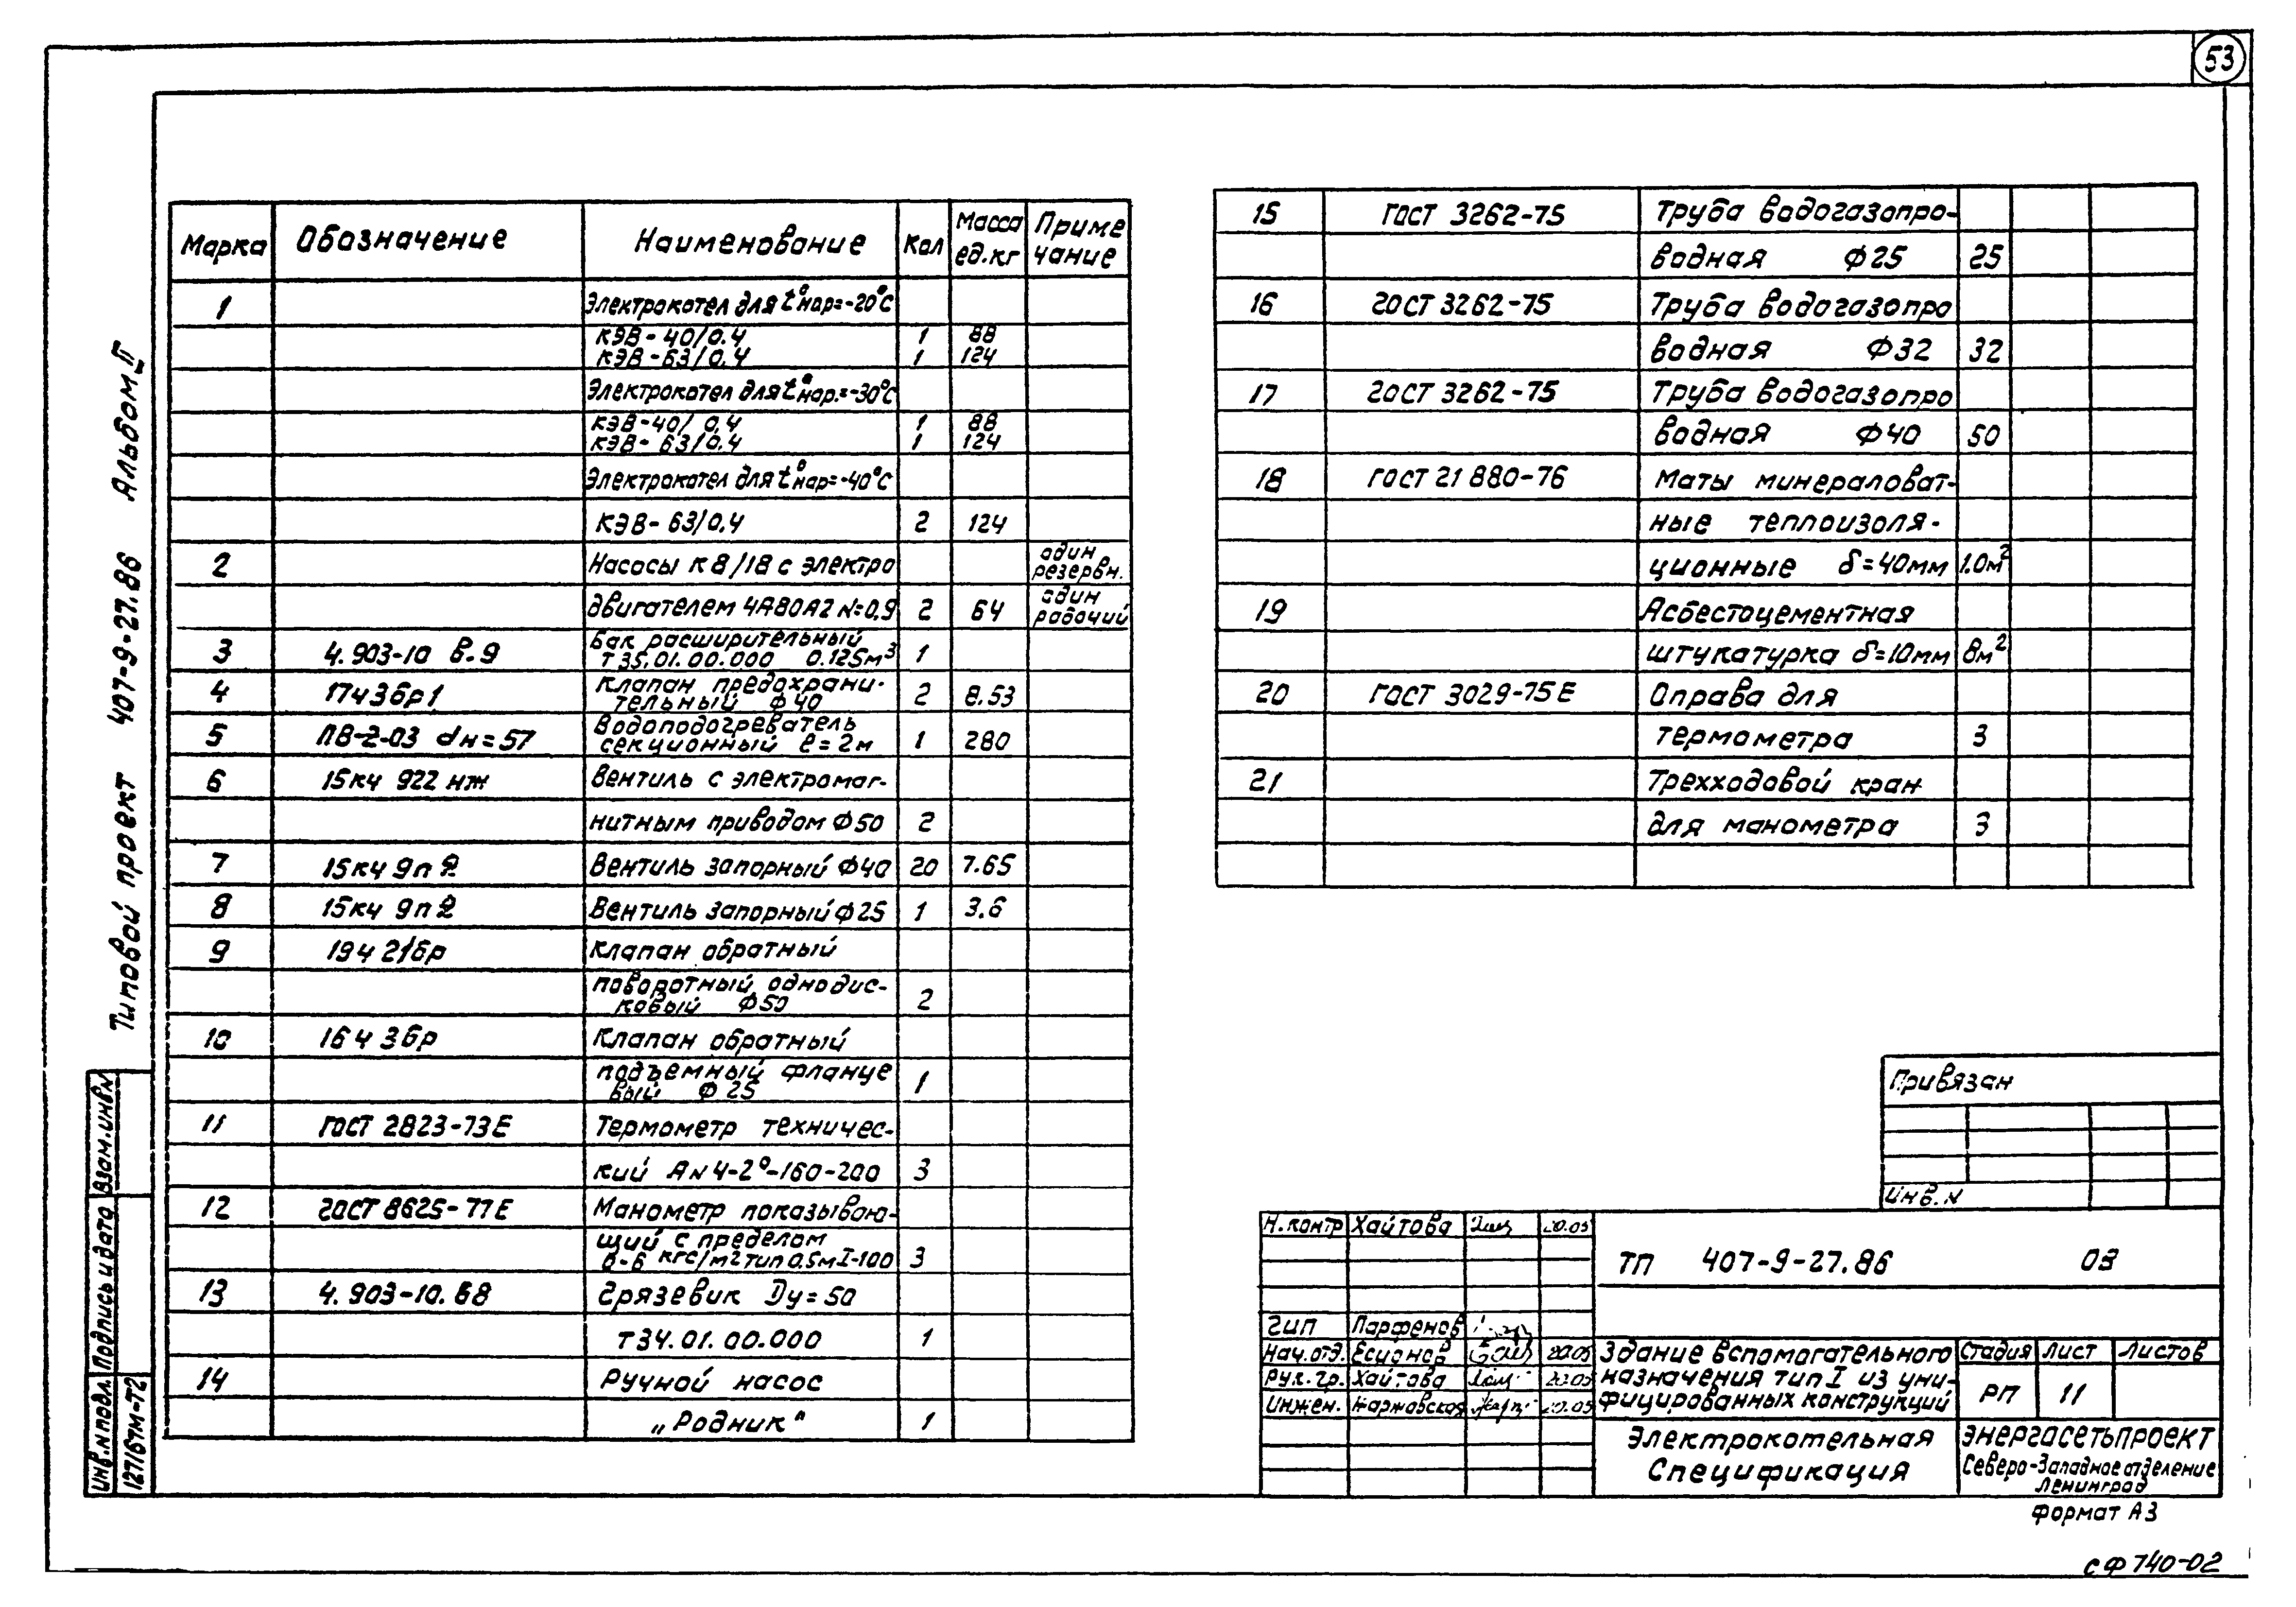 53
Марка Обозначение Наименование Кол Масса ед.кг Приме чание
1 Электрокотел для t°нар=-20°С
КЭВ-40/0.4 1 88
КЭВ-63/0.4 1 124
Электрокотел для t°нар.=-30°С
КЭВ-40/0.4 1 88
КЭВ-63/0.4 1 124
Электрокотел для t°нар=-40°С
КЭВ-63/0.4 2 124
2 Насосы К8/18 с электро один резервн.
двигателем 4А80А2 N=0,9 2 64 один рабочий
3 4.903-10 в.9 Бак расширительный
Т35.01.00.000 0.125м³ 1
4 17ч3бр1 Клапан предохрани-
тельный ф40 2 8.53
5 ПВ-2-03 dн=57 Водоподогреватель
секционный ℓ=2м 1 280
6 15кч 922 нж Вентиль с электромаг-
нитным приводом ф50 2
7 15кч 9п2 Вентиль запорный ф40 20 7.65
8 15кч 9п2 Вентиль запорный ф25 1 3.6
9 19ч 21бр Клапан обратный
поворотный однодис-
ковый ф50 2
10 16ч 3бр Клапан обратный
подъемный фланце
вый ф25 1
11 ГОСТ 2823-73Е Термометр техничес-
кий АN4-2°-160-200 3
12 ГОСТ 8625-77Е Манометр показываю-
щий с пределом
0-6 кгс/м2 тип 0.5МI-100 3
13 4.903-10.в8 Грязевик Dу=50
Т34.01.00.000 1
14 Ручной насос
„Родник" 1
15 ГОСТ 3262-75 Труба водогазопро-
водная ф25 25
16 ГОСТ 3262-75 Труба водогазопро
водная ф32 32
17 ГОСТ 3262-75 Труба водогазопро
водная ф40 50
18 ГОСТ 21880-76 Маты минераловат-
ные теплоизоля-
ционные δ=40мм 1.0м²
19 Асбестоцементная
штукатурка δ=10мм 8м²
20 ГОСТ 3029-75Е Оправа для
термометра 3
21 Трехходовой кран
для манометра 3
Типовой проект 407-9-27.86 Альбом II
Взам.инв.N
Подпись и дата
Инв.N подл.
12716тм-Т2
Привязан
Инв.N
Н.контр Хаитова 20.05
ТП 407-9-27.86 ОВ
ГИП Парфенов
Нач.отд. Есионов 20.05
Рук.гр. Хаитова 20.05
Инжен. Наржавская 20.05
Здание вспомогательного
назначения тип I из уни-
фицированных конструкций
Стадия Лист Листов
РП 11
Электрокотельная
Спецификация
ЭНЕРГОСЕТЬПРОЕКТ
Северо-Западное отделение
Ленинград
Формат А3
СФ 740-02